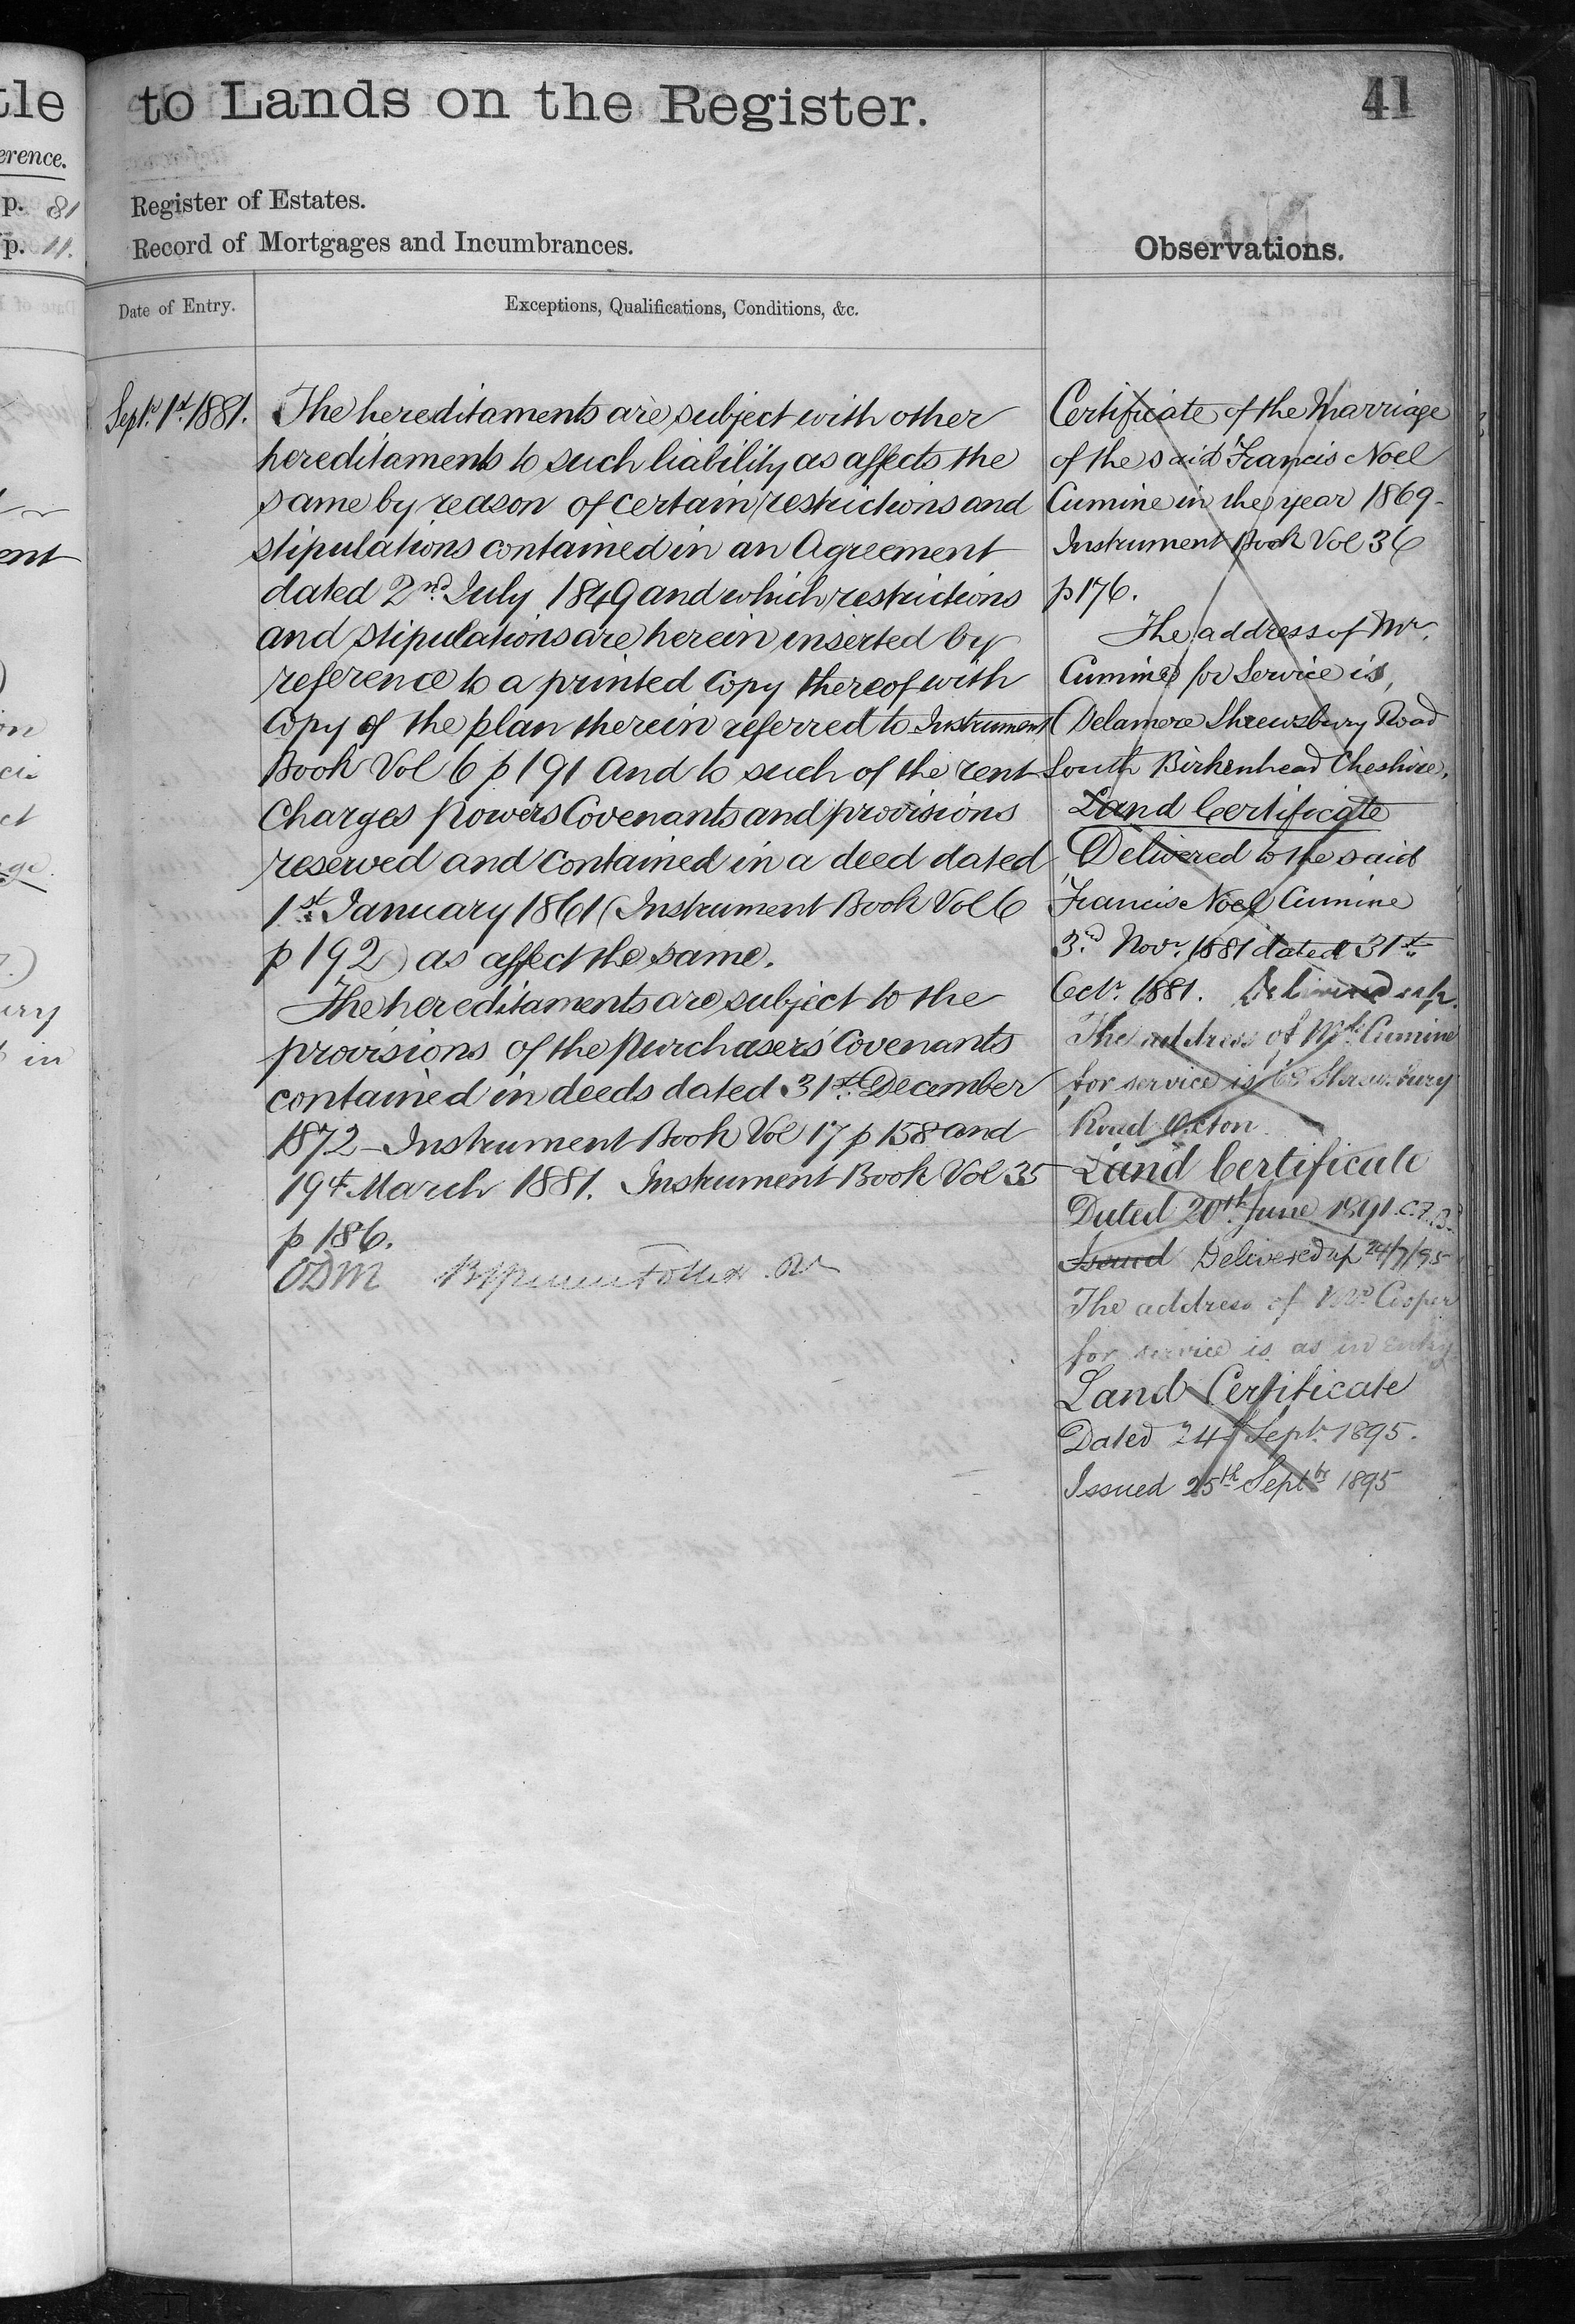 tle
erence.
p. 81
p. 11.
ent
on
ct
ge.
ury
in
to Lands on the Register.
41
Register of Estates.
Record of Mortgages and Incumbrances.
Observations.
Date of Entry.
Exceptions, Qualifications, Conditions, &c.
Septr. 1st. 1881.
The hereditaments are subject with other
hereditaments to such liability as affects the
same by reason of certain restrictions and
stipulations contained in an Agreement
dated 2nd. July 1849 and which restrictions
and stipulations are herein inserted by
reference to a printed Copy thereof with
Copy of the plan therein referred to Instrument
Book Vol 6 p 191 And to such of the rent
Charges powers Covenants and provisions
reserved and contained in a deed dated
1st. January 1861 (Instrument Book Vol 6
p 192) as affect the same.
The hereditaments are subject to the
provisions of the purchasers' Covenants
contained in deeds dated 31st. December
1872 - Instrument Book Vol 17 p 158 and
19th March 1881. Instrument Book Vol 35
p 186.
ODM
Certificate of the Marriage
of the said Francis Noel
Cumine in the year 1869 -
Instrument Book Vol 36
p 176.
The address of Mr.
Cumine for Service is,
(Delamere Shrewsbury Road
South Birkenhead Cheshire).
Land Certificate
Delivered to the said
Francis Noel Cumine
3rd. Novr. 1881 dated 31st.
Octr. 1881. Delivered up.
The address of Mr. Cumine
for service is 65 Shrewsbury
Road Oxton
Land Certificate
Dated 20th June 1891. C.F.B.
Issued Delivered up 24/7/95
The address of Mrs. Cooper
for service is as in entry
Land Certificate
Dated 24th Septr. 1895.
Issued 25th Septbr 1895